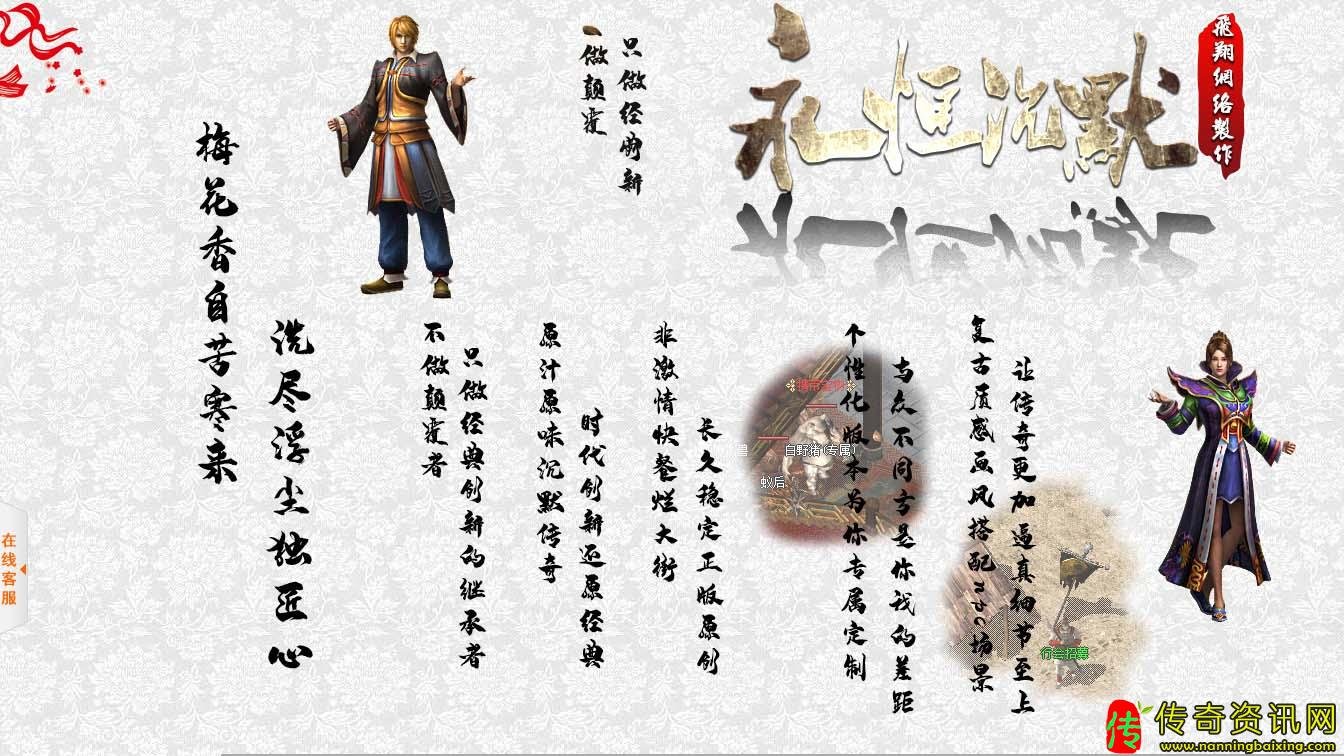 永恒沉默
飛翔網络製作
只做经典新
做颠霍
让传奇更加逼真细节至上
复古质感画风搭配npc场景
与众不同方是你我的差距
个性化版本为你专属定制
长久稳定正版原创
非激情快餐烂大街
时代创新还原经典
原汁原味沉默传奇
只做经典创新的继承者
不做颠霍者
洗尽浮尘独匠心
梅花香自苦寒来
白野猪(专属)
蚁后
行会招募
在线客服
传
传奇资讯网
www.nanningbaixing.com